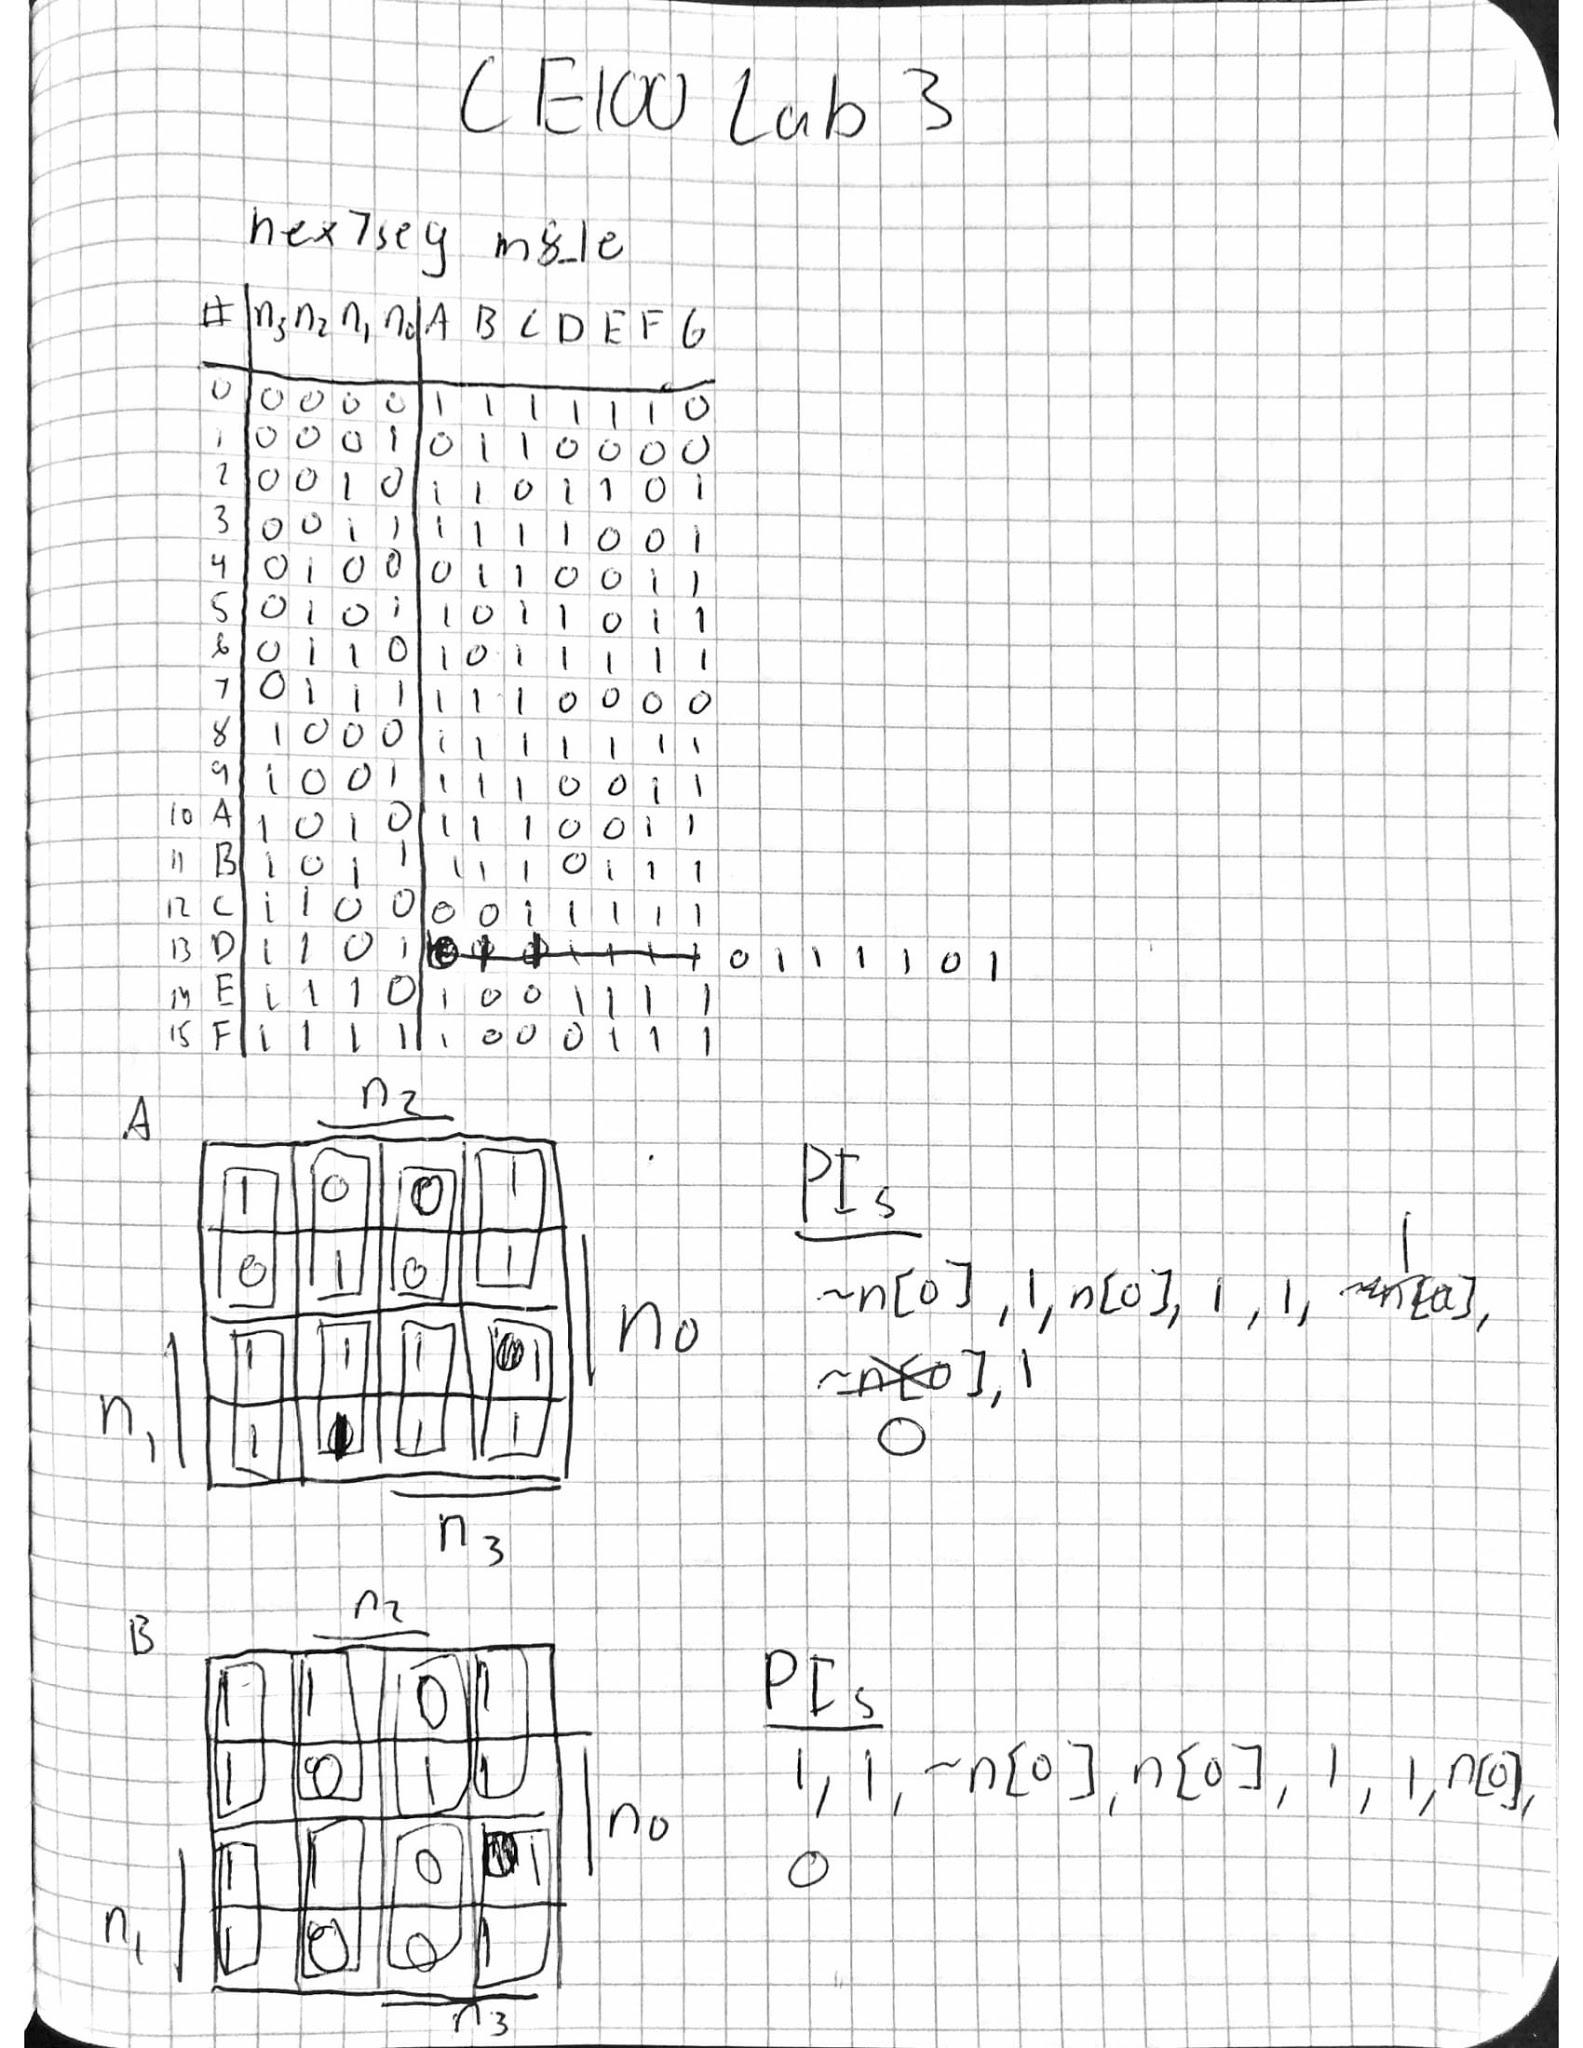 CE100 Lab 3
hex7seg m8_1e
# n3 n2 n1 n0 A B C D E F G
0 0 0 0 0 1 1 1 1 1 1 0
1 0 0 0 1 0 1 1 0 0 0 0
2 0 0 1 0 1 1 0 1 1 0 1
3 0 0 1 1 1 1 1 1 0 0 1
4 0 1 0 0 0 1 1 0 0 1 1
5 0 1 0 1 1 0 1 1 0 1 1
6 0 1 1 0 1 0 1 1 1 1 1
7 0 1 1 1 1 1 1 0 0 0 0
8 1 0 0 0 1 1 1 1 1 1 1
9 1 0 0 1 1 1 1 0 0 1 1
10 A 1 0 1 0 1 1 1 0 0 1 1
11 B 1 0 1 1 1 1 1 0 1 1 1
12 C 1 1 0 0 0 0 1 1 1 1 1
13 D 1 1 0 1 0 1 1 1 1 0 1
14 E 1 1 1 0 1 0 0 1 1 1 1
15 F 1 1 1 1 1 0 0 0 1 1 1
A n2
1 0 0 1
0 1 0 1
n0
1 1 1 1
n1
1 1 1
n3
PIs
1
~n[0], 1, n[0], 1, 1, ~n[0],
~n[0], 1
0
B n2
1 1 0 1
1 0 1 1
n0
1 1 0 1
n1
1 0 0 1
n3
PIs
1, 1, ~n[0], n[0], 1, 1, n[0],
0